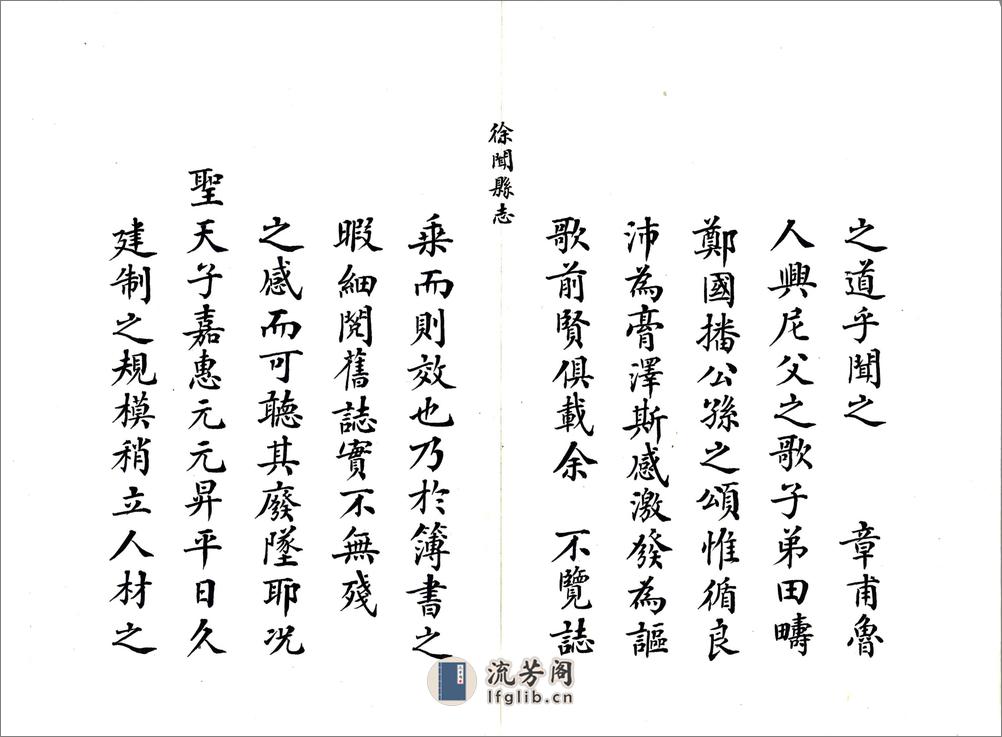 之道乎聞之 章甫魯
人興尼父之歌子弟田疇
鄭國播公孫之頌惟循良
沛為膏澤斯感激發為謳
歌前賢俱載余 不覽誌
徐聞縣志
乘而則效也乃於簿書之
暇細閱舊誌實不無殘
之感而可聽其廢墜耶况
聖天子嘉惠元元昇平日久
建制之規模稍立人材之
流芳阁
lfglib.cn